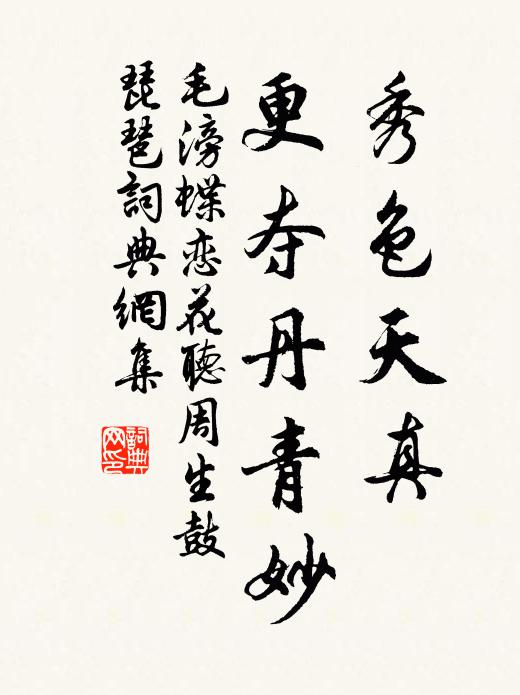 秀色天真
更夺丹青妙
毛滂蝶恋花聽周生鼓
琵琶詞典網集
詞典
网印